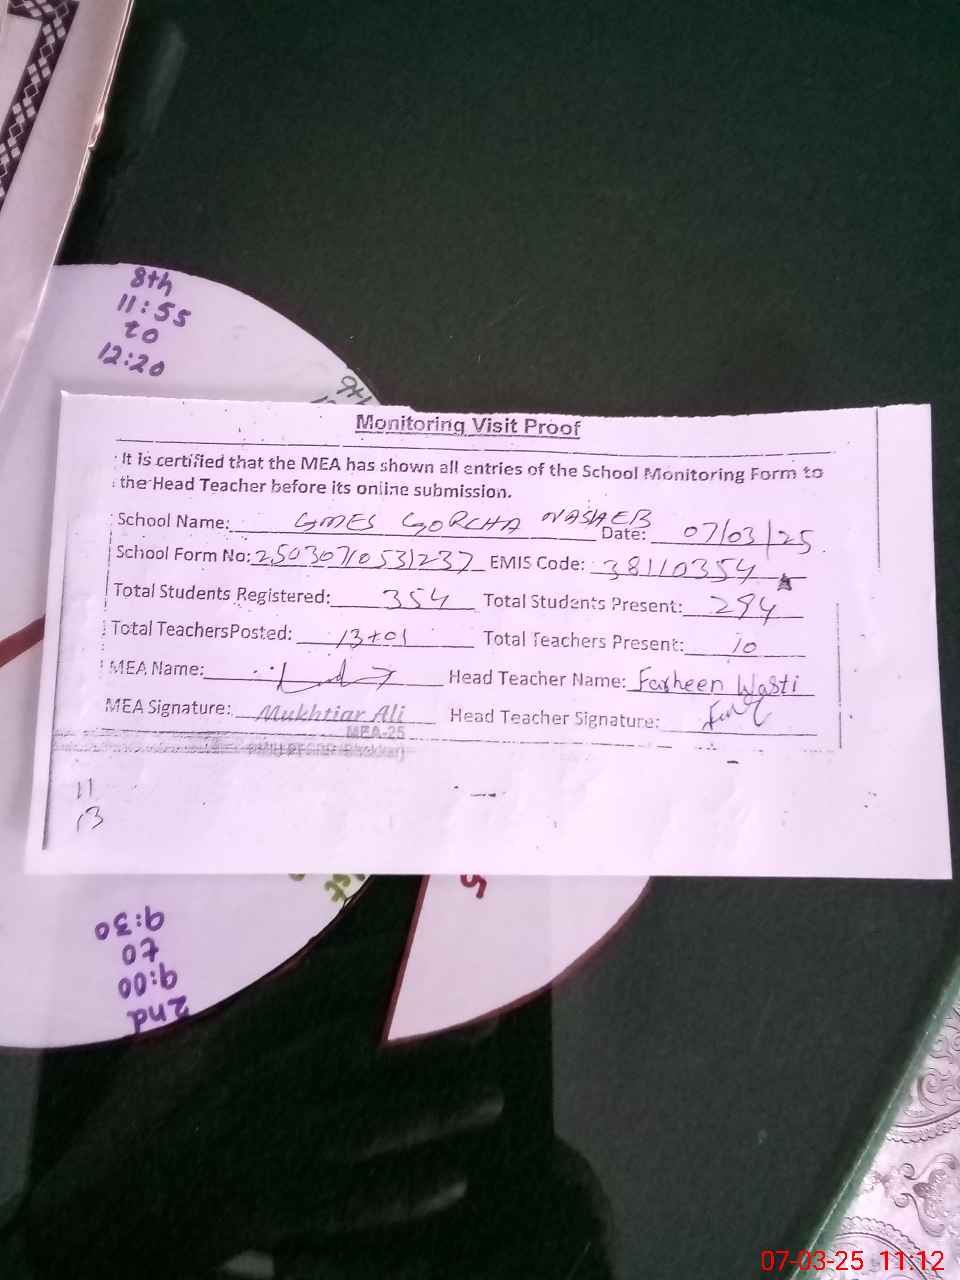 8th
11:55
to
12:20
9th
Monitoring Visit Proof
It is certified that the MEA has shown all entries of the School Monitoring Form to
the Head Teacher before its online submission.
School Name: GMES GORCHA Date: 07/03/25
School Form No: 25030710531237 EMIS Code: 38110354
Total Students Registered: 354 Total Students Present: 294
Total TeachersPosted: 13+01 Total Teachers Present: 10
MEA Name: Head Teacher Name: Farheen Wasti
MEA Signature: Mukhtiar Ali Head Teacher Signature:
MEA-25
11
13
1st
5
2nd
9:00
to
9:30
07-03-25 11:12